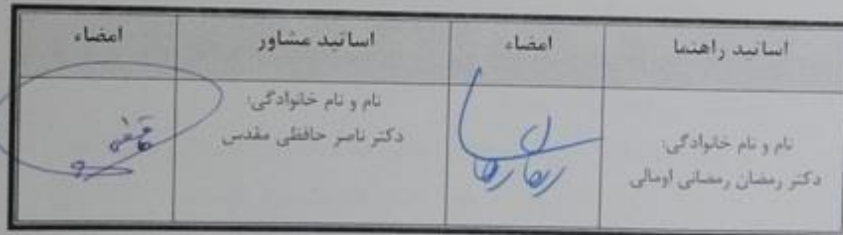 اساتید راهنما	امضاء	اساتید مشاور	امضاء
نام و نام خانوادگی:
دکتر رمضان رمضانی اومالی
نام و نام خانوادگی:
دکتر ناصر حافظی مقدس